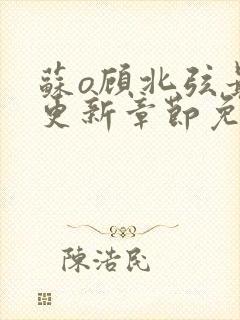 蘇o顾北弦
更新章節免
陳浩民